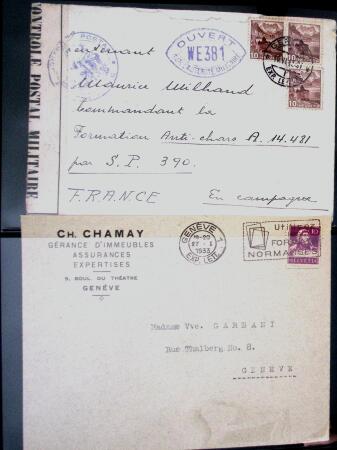 CONTROLE POSTAL MILITAIRE
OUVERT
WE381
Lieutenant
Maurice Milhaud
Commandant la
Formation Anti-chars A. 14.481
par S.P. 390.
FRANCE
En campagne
10
10
10
CH. CHAMAY
GÉRANCE D'IMMEUBLES
ASSURANCES
EXPERTISES
5, BOUL. DU THÉATRE
GENÈVE
GENÈVE 1
27 - 1
1933
EXP. LETT.
FORMATS
NORMALISÉS
10
HELVETIA
Madame Vve. GARBANT
Rue Thalberg No. 8.
GENÈVE